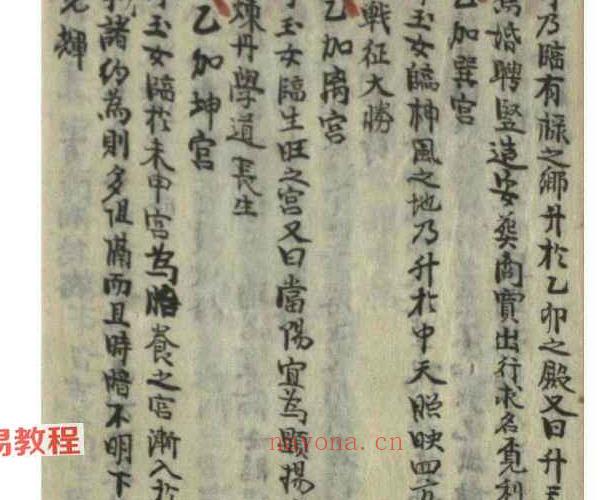 乃臨有祿之鄉升於乙卯之殿又曰升
為婚聘豎造安葬商賈出行求名覓利
乙加巽宮
玉女臨神風之地乃升於中天照映四
戰征大勝
乙加离宮
玉女臨生旺之宮又曰當陽宜為顯揚
煉丹學道長生
乙加坤宮
玉女臨於未申宮為胎養之宮漸入於
諸約為則多阻隔而且時暗不明下
光輝
易教程
nayona.cn